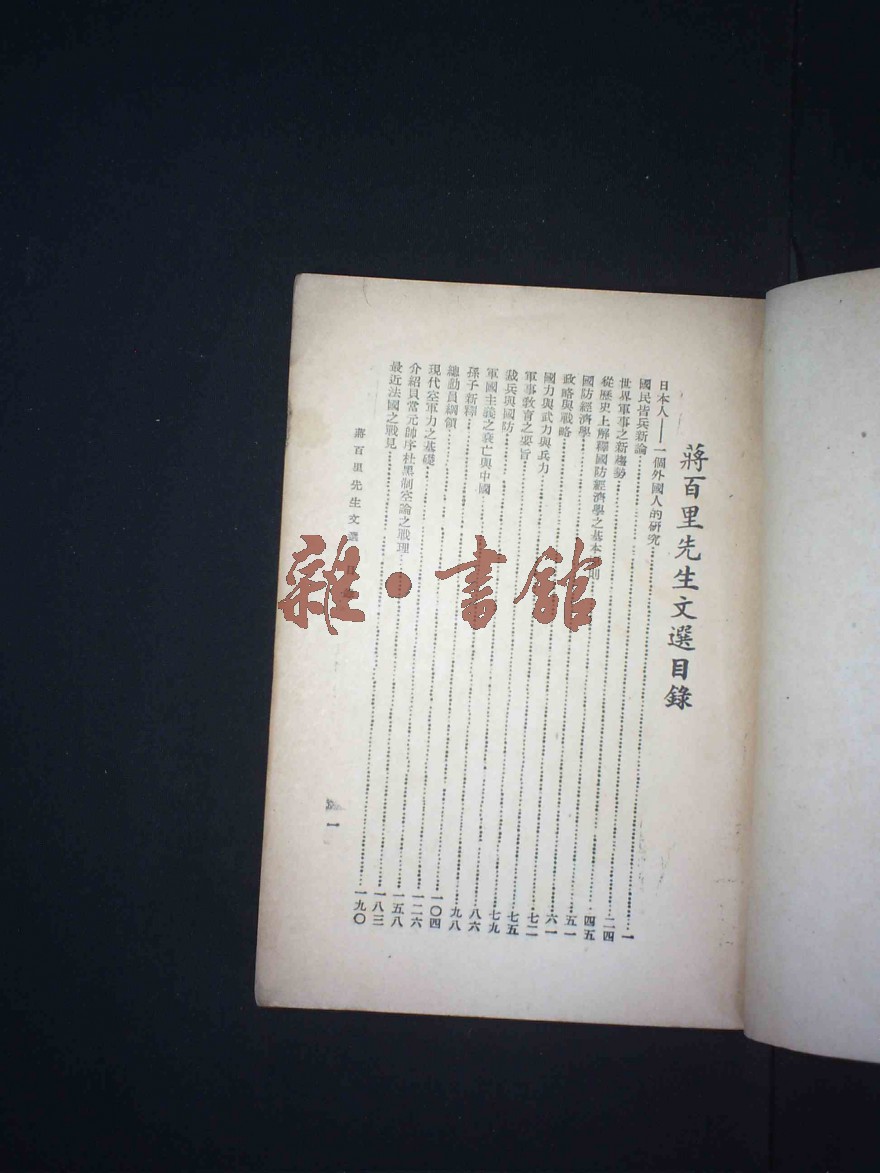 蔣百里先生文選目錄
日本人——一個外國人的研究……一
國民皆兵新論……二四
世界軍事之新趨勢……四五
從歷史上解釋國防經濟學之基本則……五一
國防經濟學……六一
政略與戰略……七二
國力與武力與兵力……七五
軍事教育之要旨……七九
裁兵與國防……八六
軍國主義之衰亡與中國……九八
孫子新釋……一〇四
總動員綱領……一二六
現代空軍力之基礎……一五八
介紹貝當元帥序杜黑制空論之戰理……一八三
最近法國之戰見……一九〇
蔣百里先生文選
一
雜·書館